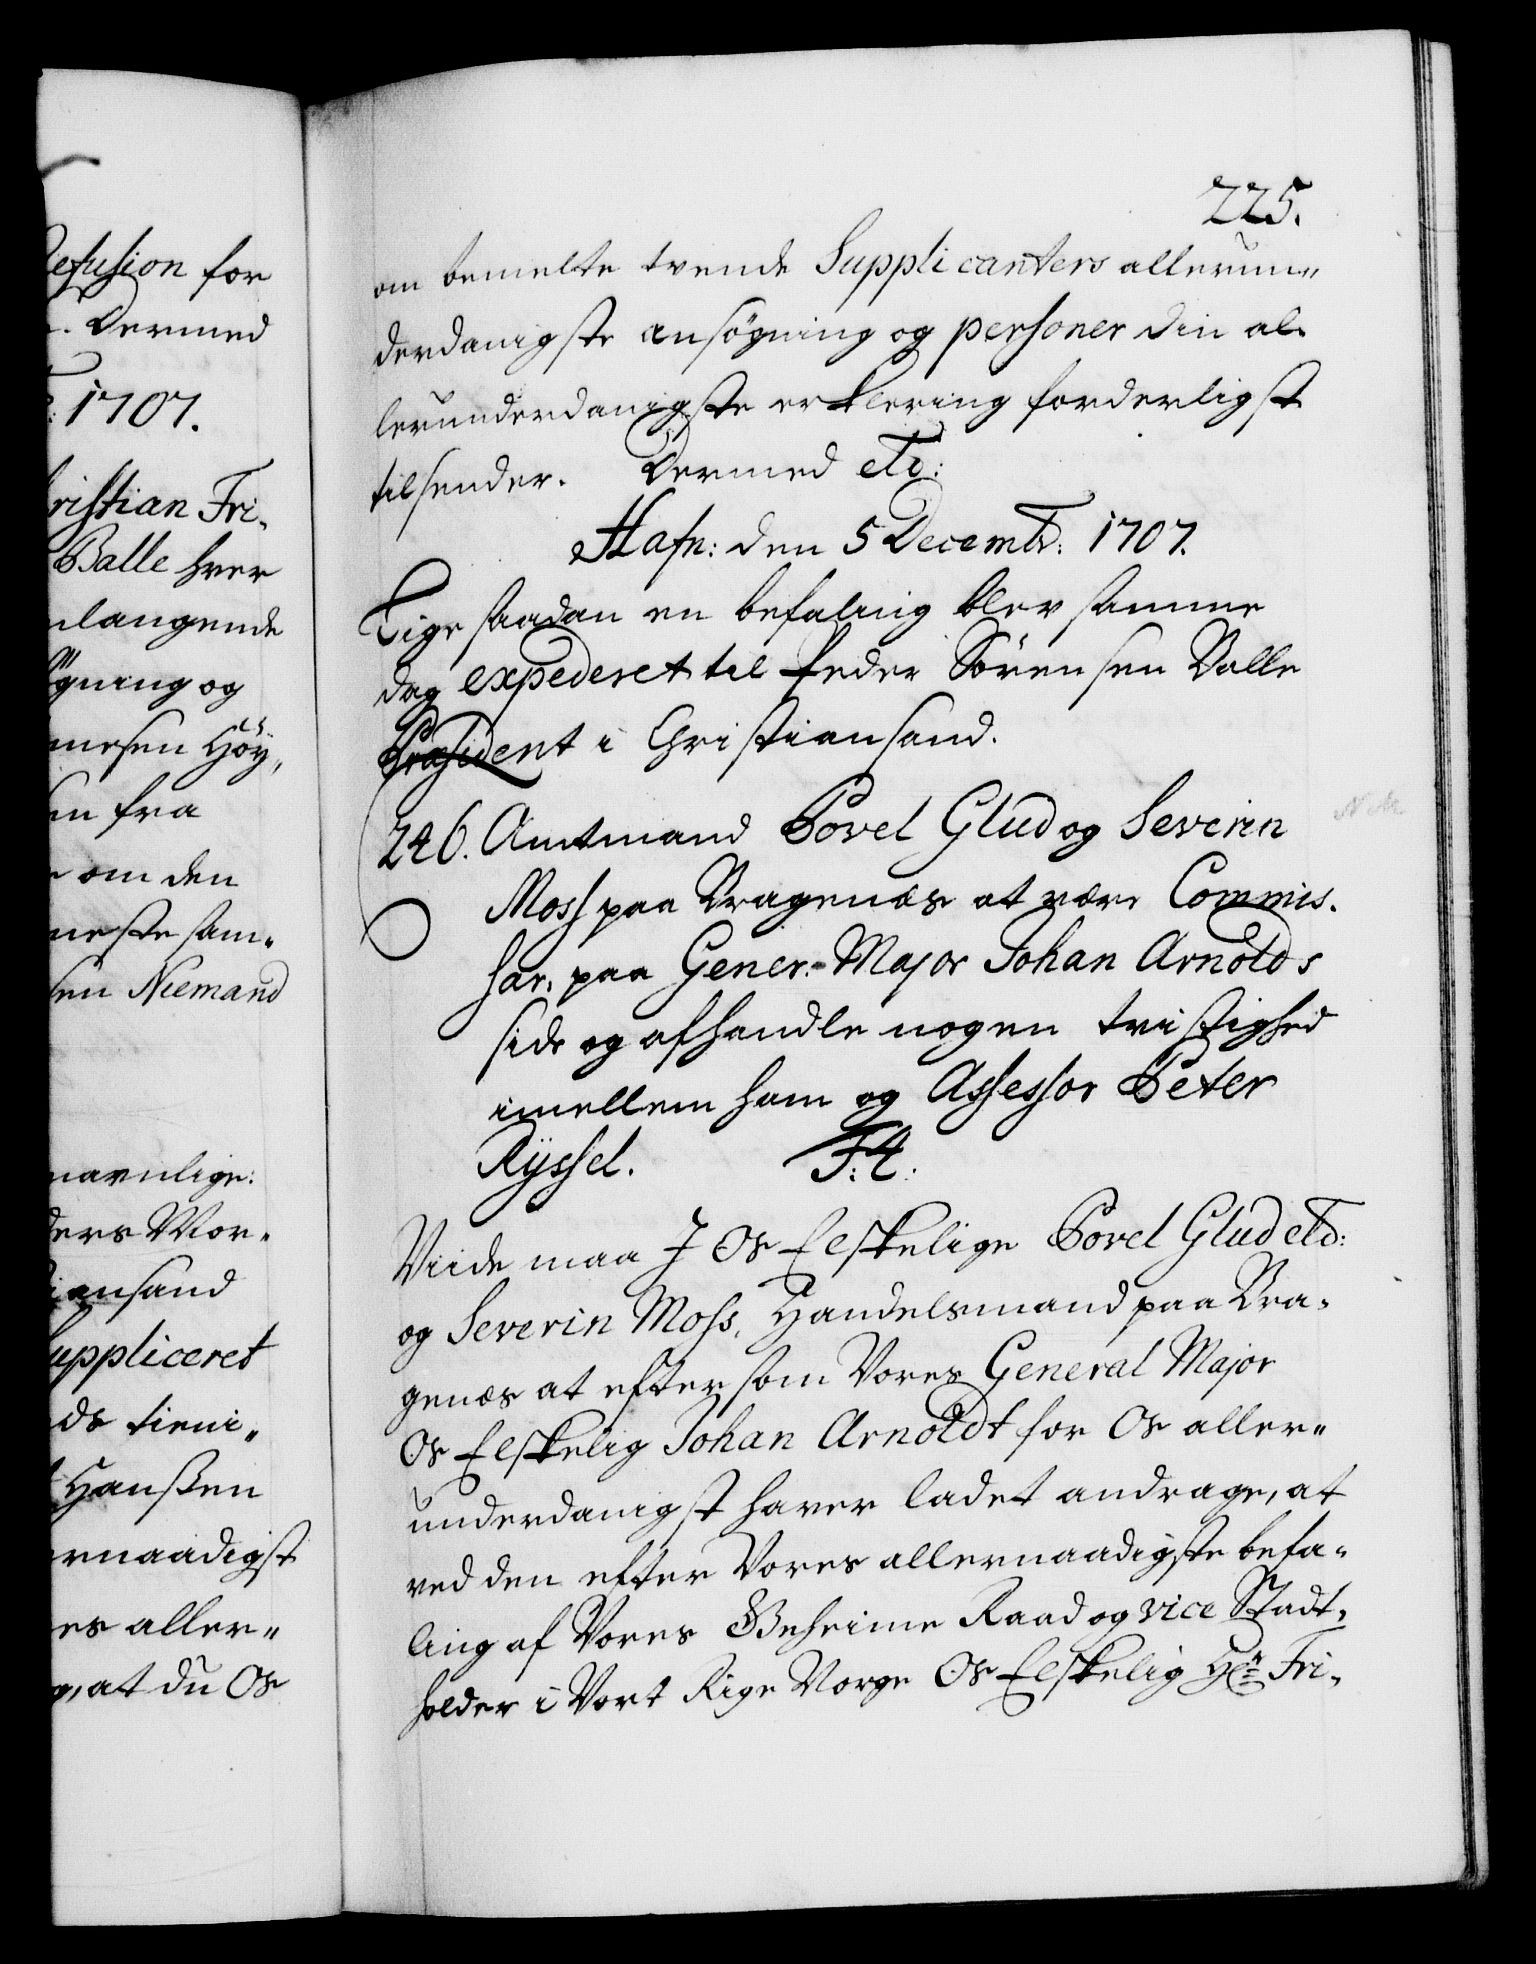 efusion for
. Dermed
: 1707.
ristian Fri-
Balle hver
nlangende
gning og
mesen Höy,
en fra
om den
neste sam-
sen Niemand
navnlige:
ders Mor-
iansand
uppliceret
ds tieni-
Hanßen
rnaadigst
es aller-
at du Os
225.
om bemelte tvende Supplicanters allerun-
derdanigste ansögning og personer din al-
lerunderdanigste erklering forderligst
tilsender. Dermed etc:
Hafn: den 5 Decembr: 1707.
Lige saadan en befaling blev samme
dag expederet til Peder Sörensen Balle
Præsident i Christiansand.
246. Amtmand Povel Glud og Severin
Moss paa Bragenæs at være Commis-
sar. paa Gener:-Major Johan Arnolds
side og afhandle nogen tvistighed
imellem ham og Assessor Peter
Rÿssel. F: 4.
Viide maa J Os Elskelige Povel Glud etc:
og Severin Moss, Handelsmand paa Bra-
genæs at eftersom Vores General Major
Os Elskelig Johan Arnoldt for Os aller-
underdanigst haver ladet andrage, at
ved den efter Vores allernaadigste befa-
ling af Vores Geheime Raad og vice Stadt-
holder i Vort Rige Norge Os Elskelig Hr Fri-